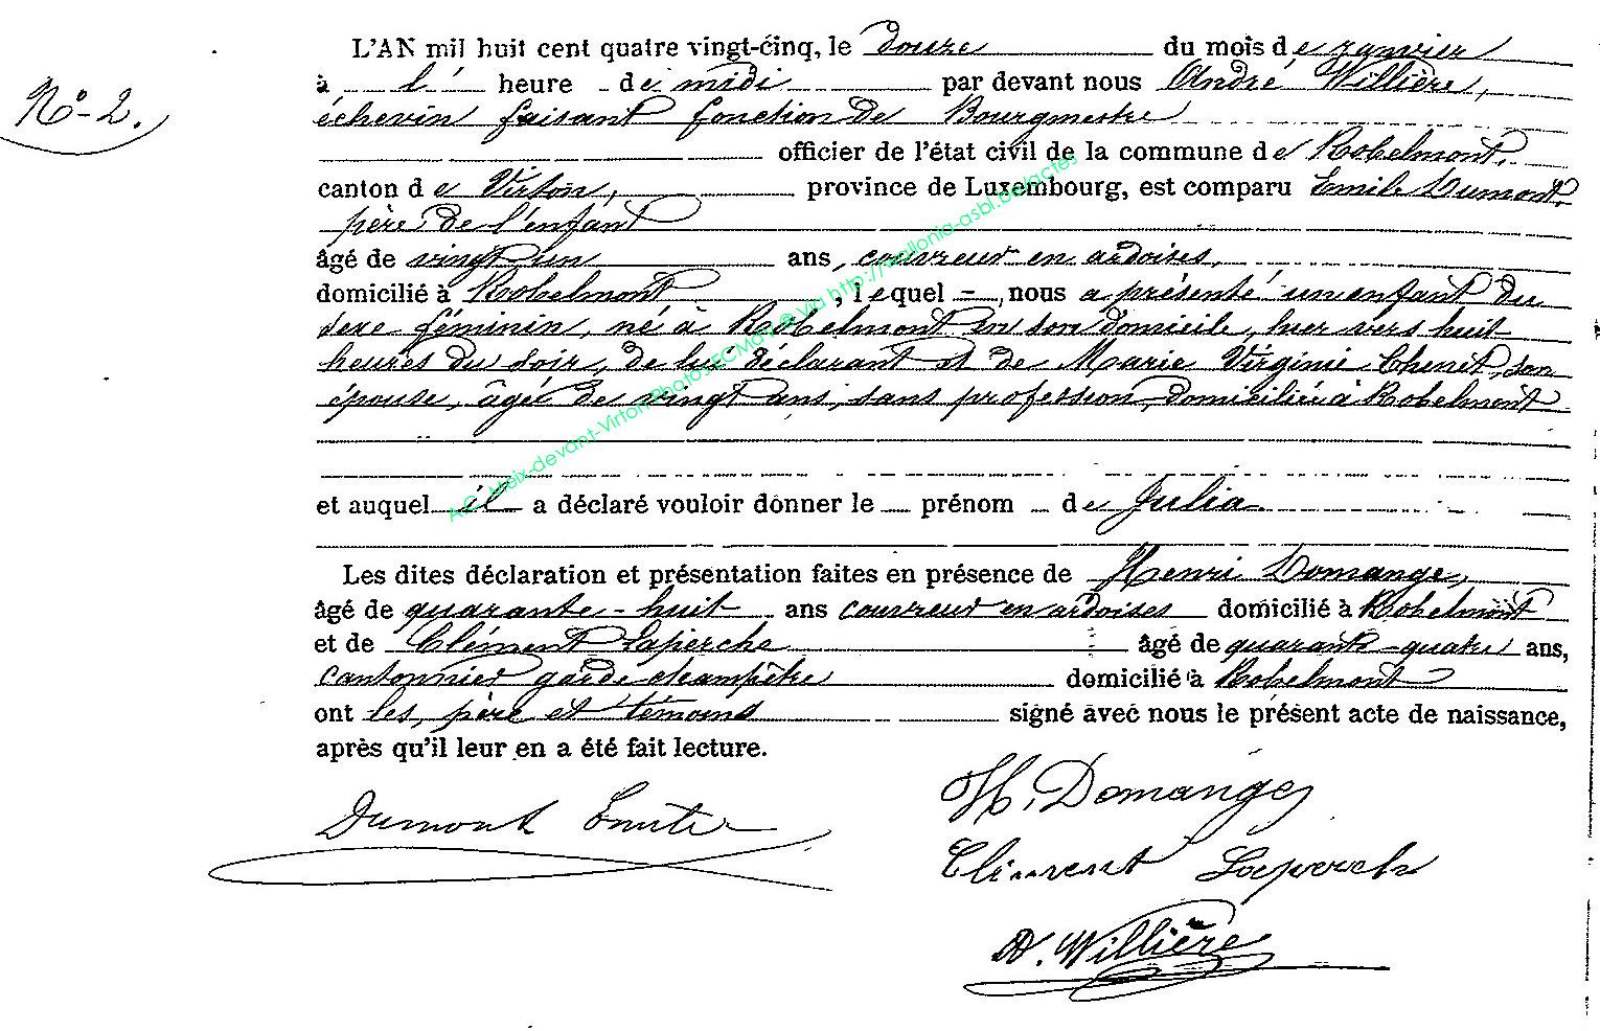 N° 2.
L'AN mil huit cent quatre vingt-cinq, le douze du mois de janvier
à l' heure de midi par devant nous André Willière,
échevin faisant fonction de Bourgmestre
officier de l'état civil de la commune de Robelmont,
canton de Virton, province de Luxembourg, est comparu Emile Dumont,
père de l'enfant
âgé de vingt un ans, couvreur en ardoises,
domicilié à Robelmont, lequel nous a présenté un enfant du
sexe féminin, né à Robelmont en son domicile, hier vers huit
heures du soir, de lui déclarant et de Marie Virginie Chenet, son
épouse, âgée de vingt ans, sans profession, domiciliée à Robelmont
et auquel il a déclaré vouloir donner le prénom de Julia.
Les dites déclaration et présentation faites en présence de Henri Domange,
âgé de quarante-huit ans couvreur en ardoises domicilié à Robelmont
et de Clément Laperche âgé de quarante-quatre ans,
cantonnier garde champêtre domicilié à Robelmont
ont les, père et témoins signé avec nous le présent acte de naissance,
après qu'il leur en a été fait lecture.
H. Domange
Dumont Emile
Clément Laperche
A. Willière
A.C. Meix-devant-Virton Photos ECMdV © via http://wallonia-asbl.be/actes